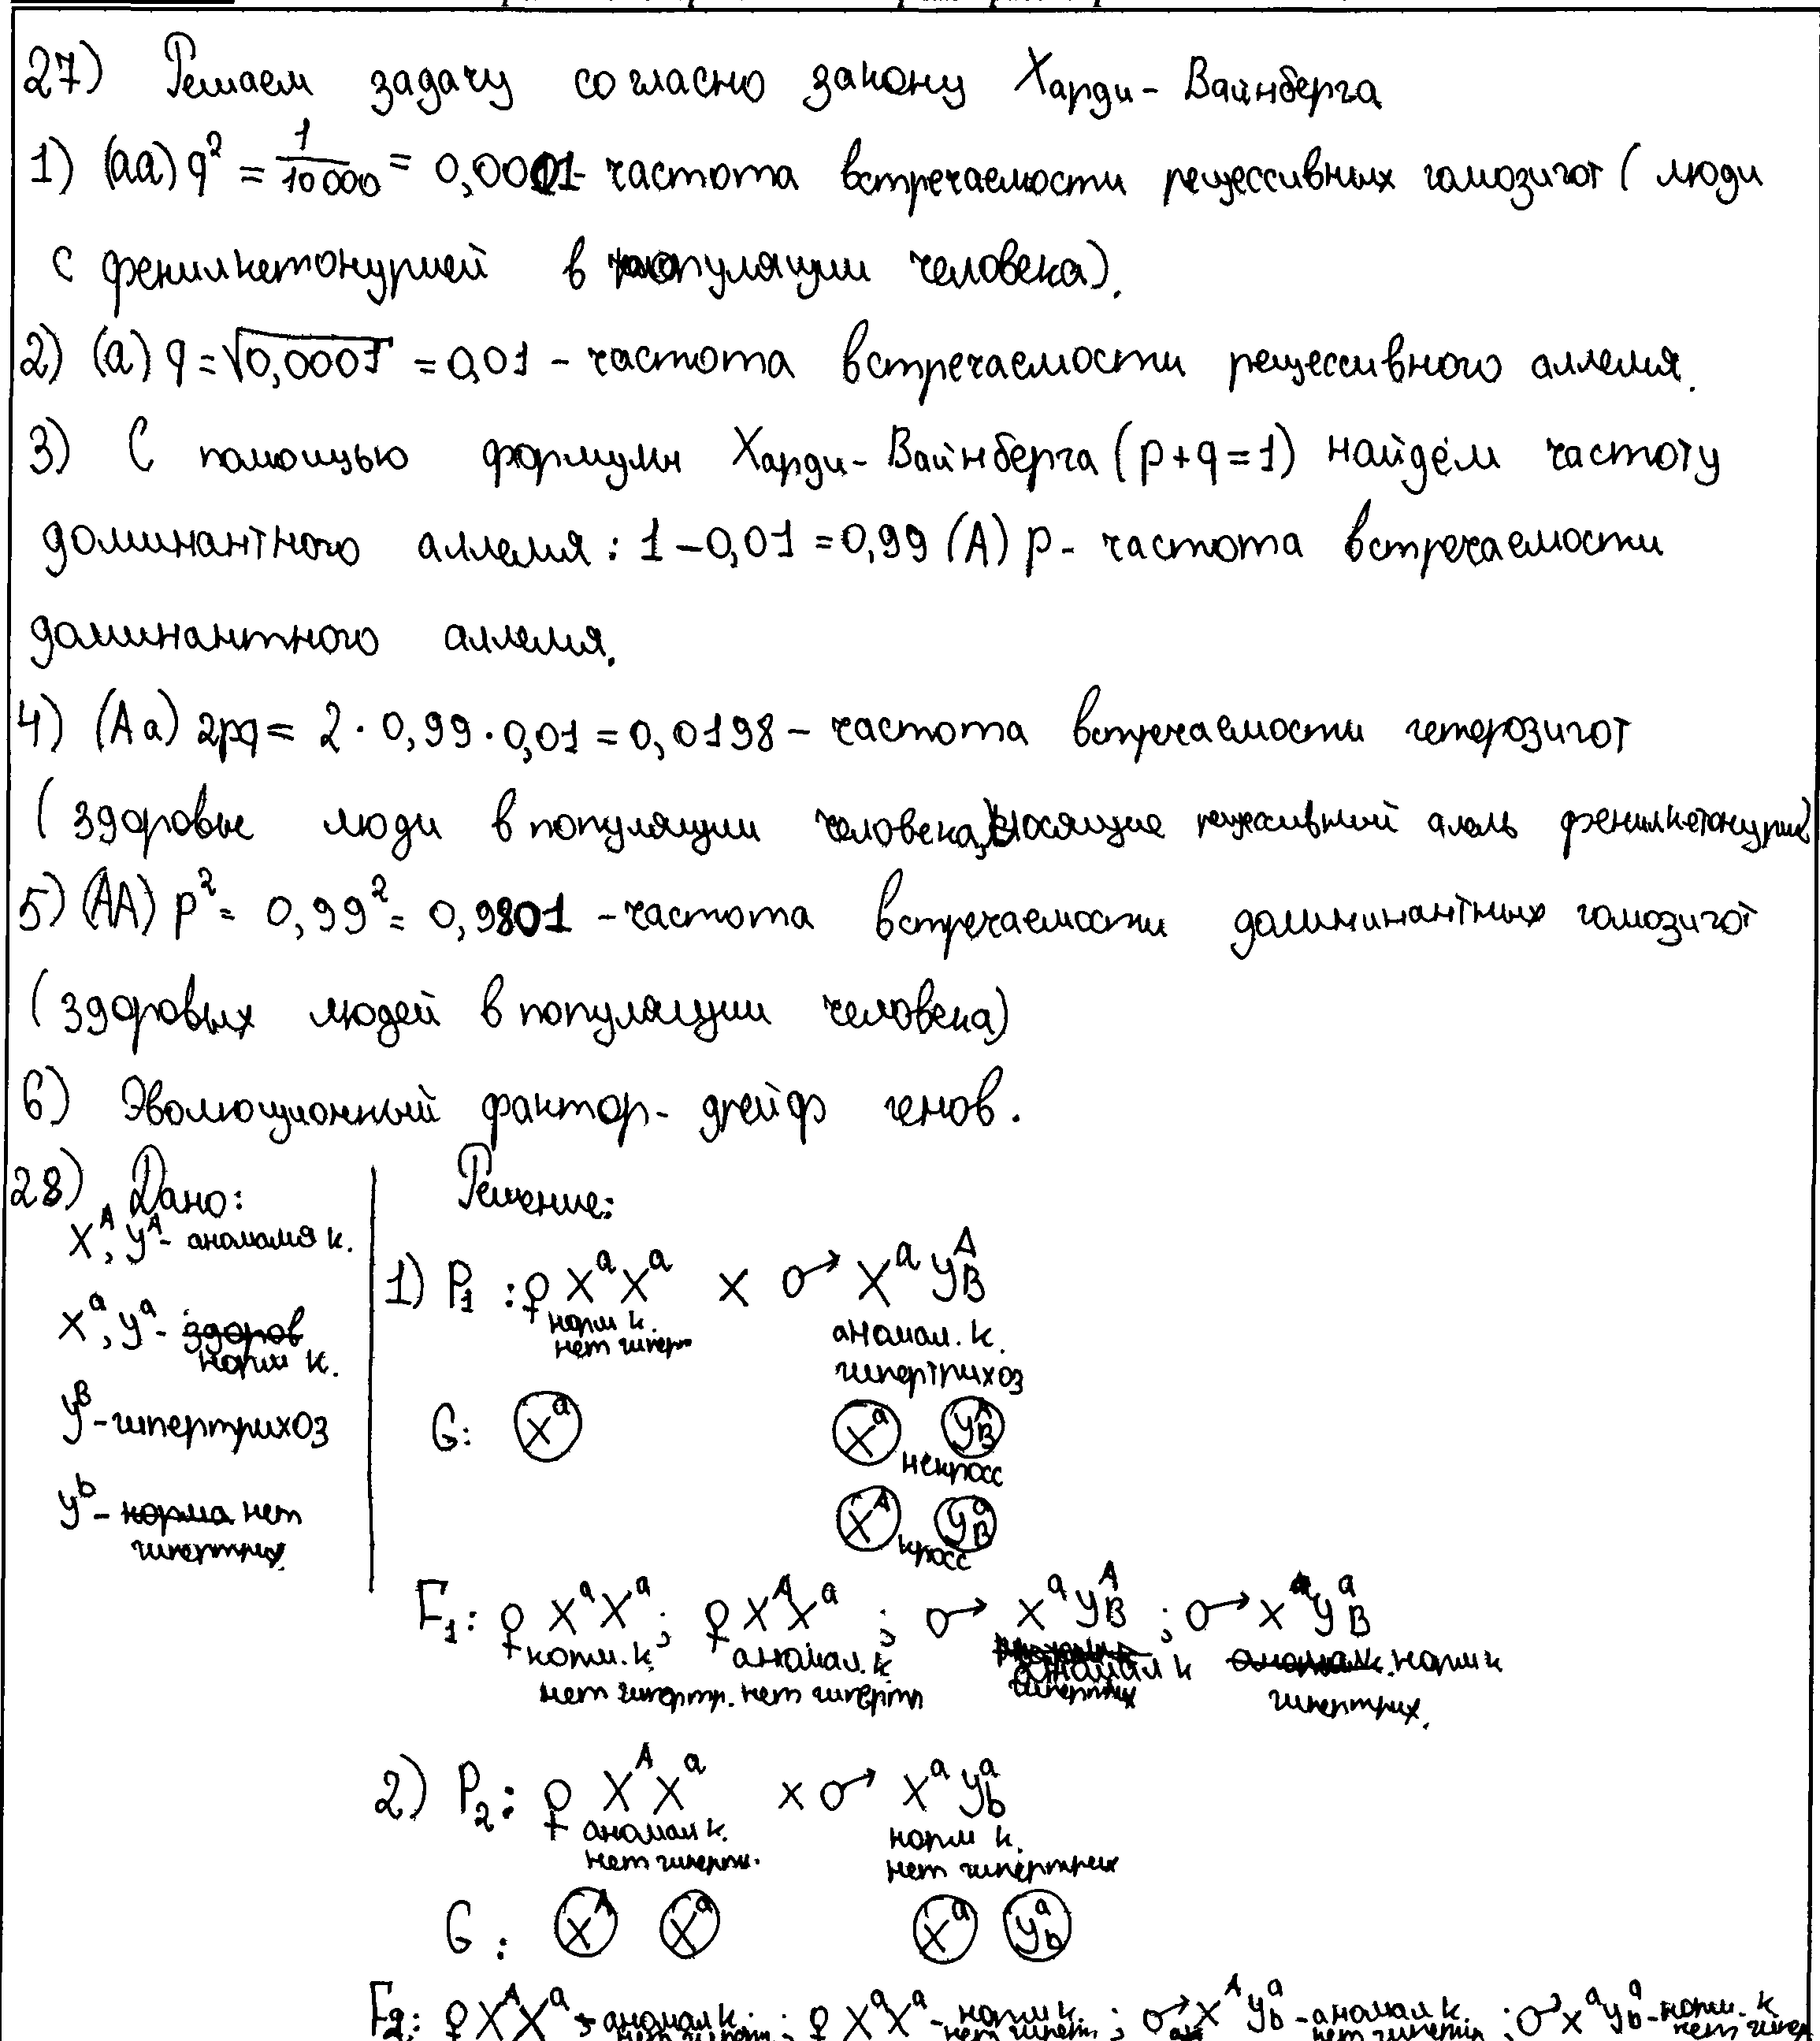 27) Решаем задачу согласно закону Харди-Вайнберга
1) (aa) q² = 1/10000 = 0,0001 - частота встречаемости рецессивных гомозигот (люди
с фенилкетонурией в популяции человека).
2) (a) q = √0,0001 = 0,01 - частота встречаемости рецессивного аллеля.
3) С помощью формулы Харди-Вайнберга (p+q=1) найдём частоту
доминантного аллеля: 1-0,01=0,99 (A) p - частота встречаемости
доминантного аллеля.
4) (Aa) 2pq = 2·0,99·0,01=0,0198 - частота встречаемости гетерозигот
(здоровые люди в популяции человека, носящие рецессивный алель фенилкетонурии)
5) (AA) p² = 0,99² = 0,9801 - частота встречаемости доминнантных гомозигот
(здоровых людей в популяции человека)
6) Эволюционный фактор - дрейф генов.
28) Дано: Решение:
X^A, y^A - аномалия к.
X^a, y^a - здоров норм к.
y^B - гипертрихоз
y^b - норма нет гипертрих.
1) P₁: ♀ X^a X^a x ♂ X^a y^A_B
норм к. аномал. к.
нет гиперт гипертрихоз
G: X^a X^a y^A_B
некросс
X^A y^a_B
кросс
F₁: ♀ X^a X^a; ♀ X^A X^a; ♂ X^a y^A_B; ♂ X^a y^a_B
норм. к. аномал. к. аномал к аномал к. норм к
нет гипертр. нет гипертр гипертрих гипертрих.
2) P₂: ♀ X^A X^a x ♂ X^a y^a_b
аномал к. норм к.
нет гиперт. нет гипертрих
G: X^A X^a X^a y^a_b
F₂: ♀ X^A X^a - аномал к.; ♀ X^a X^a - норм к.; ♂ X^A y^a_b - аномал к.; ♂ X^a y^a_b - норм. к